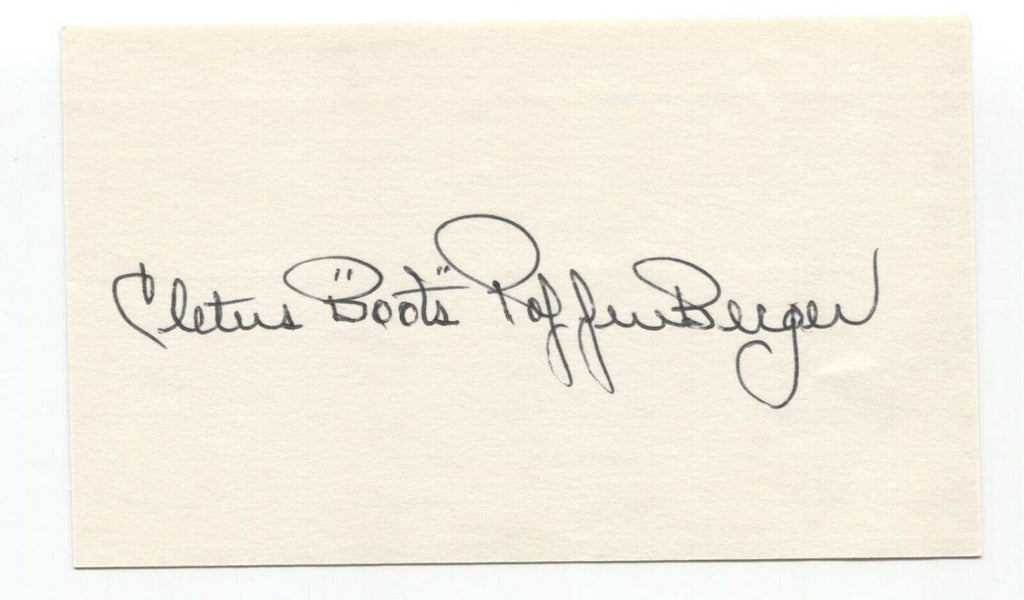 Cletus "Boots" PoffenBerger